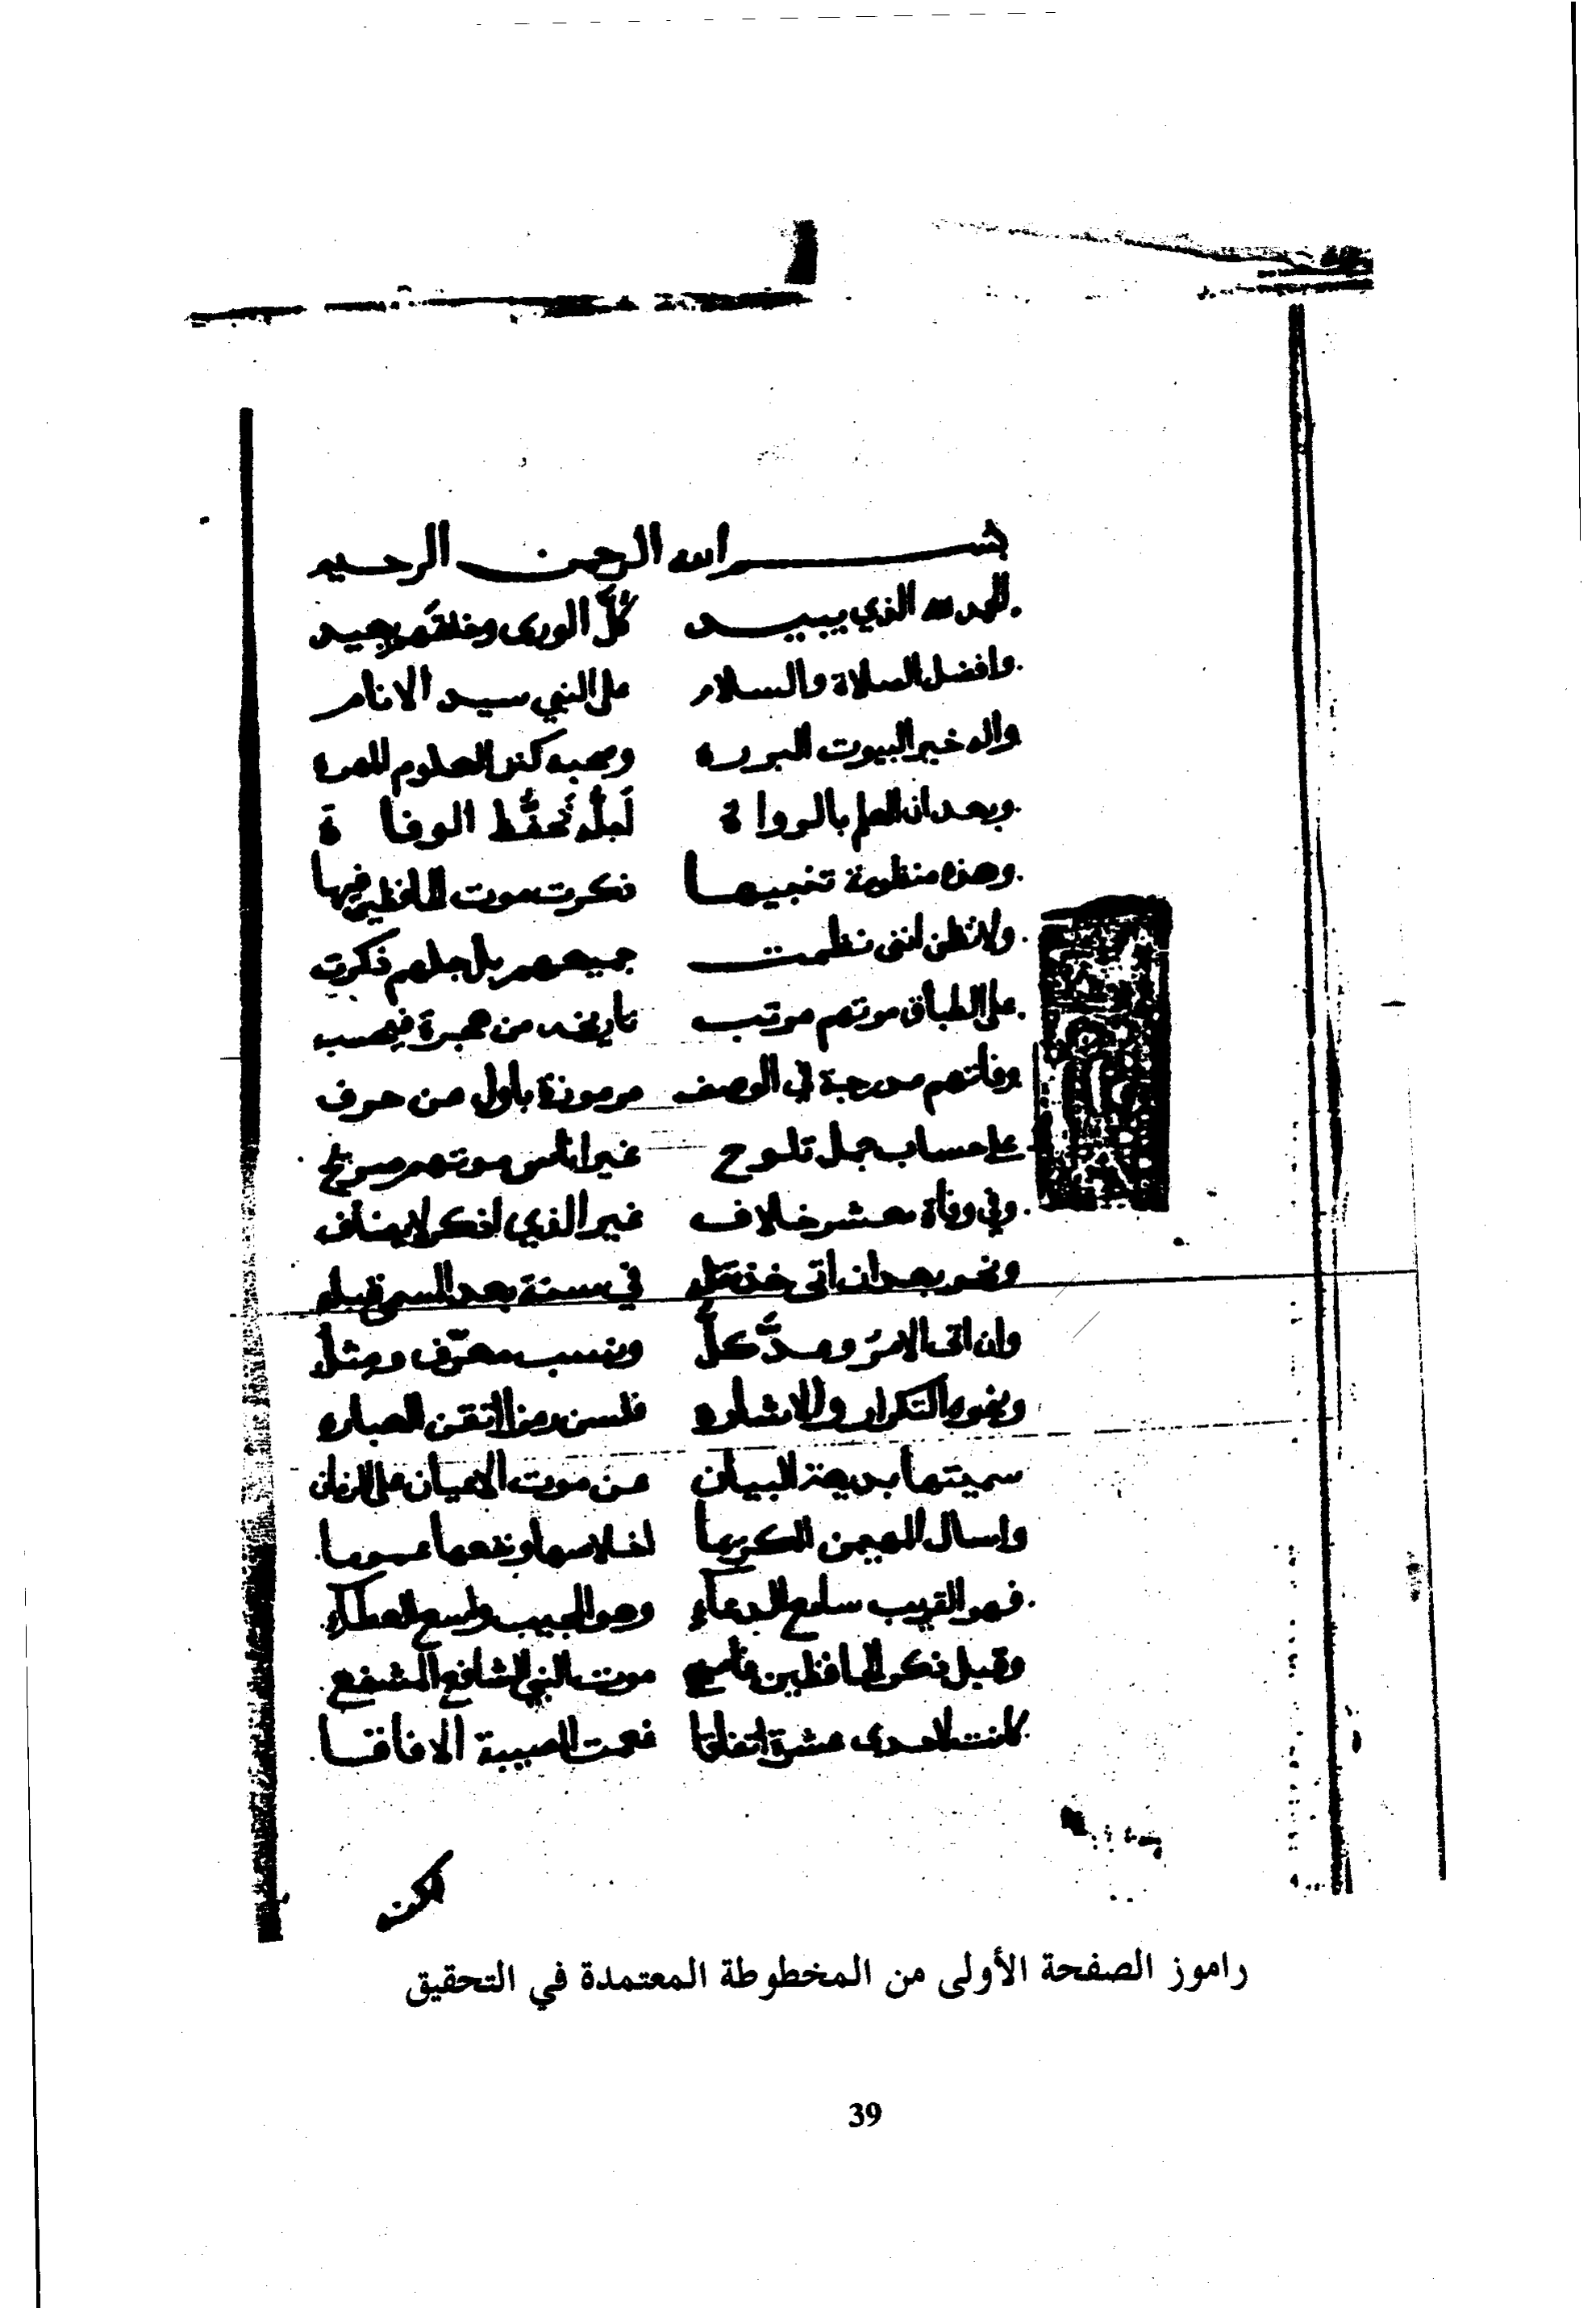 بسم الله الرحمن الرحيم
الحمد لله الذي يبيد كلَّ الورى وخلقهم يجيد
وافضل الصلاة والسلام على النبي سيد الانام
واله خير البيوت البرره وصحبه كنز العلوم المهره
وبعد ان العلم بالرواة لعله تحفظ الوفاة
وهذه منظومة تنبيها ذكرت موت الحافظين فيها
ولا تظن انني نظمت جميعهم بل جلهم ذكرت
على الطباق موتهم مرتب تاريخه من هجرة فيحسب
وفاتهم مدرجة في الوصف مرموزة باول من حرف
على حساب جمل تلوح غير اناس موتهم صريح
وفي وفاة معشر خلاف غير الذي اذكر لا يضاف
ونحو بعد ان اتى خذ نقله في سنة بعد المسمى قبله
وان اتى الامر وعدَّ كلُّ ونسب معرّف ومثلُ
ونحوه التكرار والاشاره فلسن رمزا اتقن العباره
سميتها بديعة البيان عن موت الاعيان على الزمان
واسال المهيمن الكريما اخلاصها ونفعها عموما
فهو القريب سامع الدعآء وهو المجيب واسع العطآء
وقبل ذكر الحافظين فاسمع موت النبي الشافع المشفع
كانت لاحدى عشرة اتفاقا فعمت المصيبة الافاقا
لكن
راموز الصفحة الأولى من المخطوطة المعتمدة في التحقيق
39